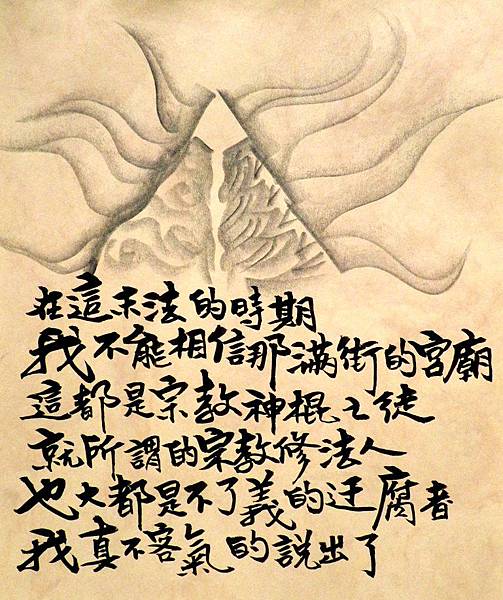 在這末法的時期
我不能相信那滿街的宮廟
這都是宗教神棍之徒
就所謂的宗教修法人
也大都是不了義的迂腐者
我真不客氣的說出了